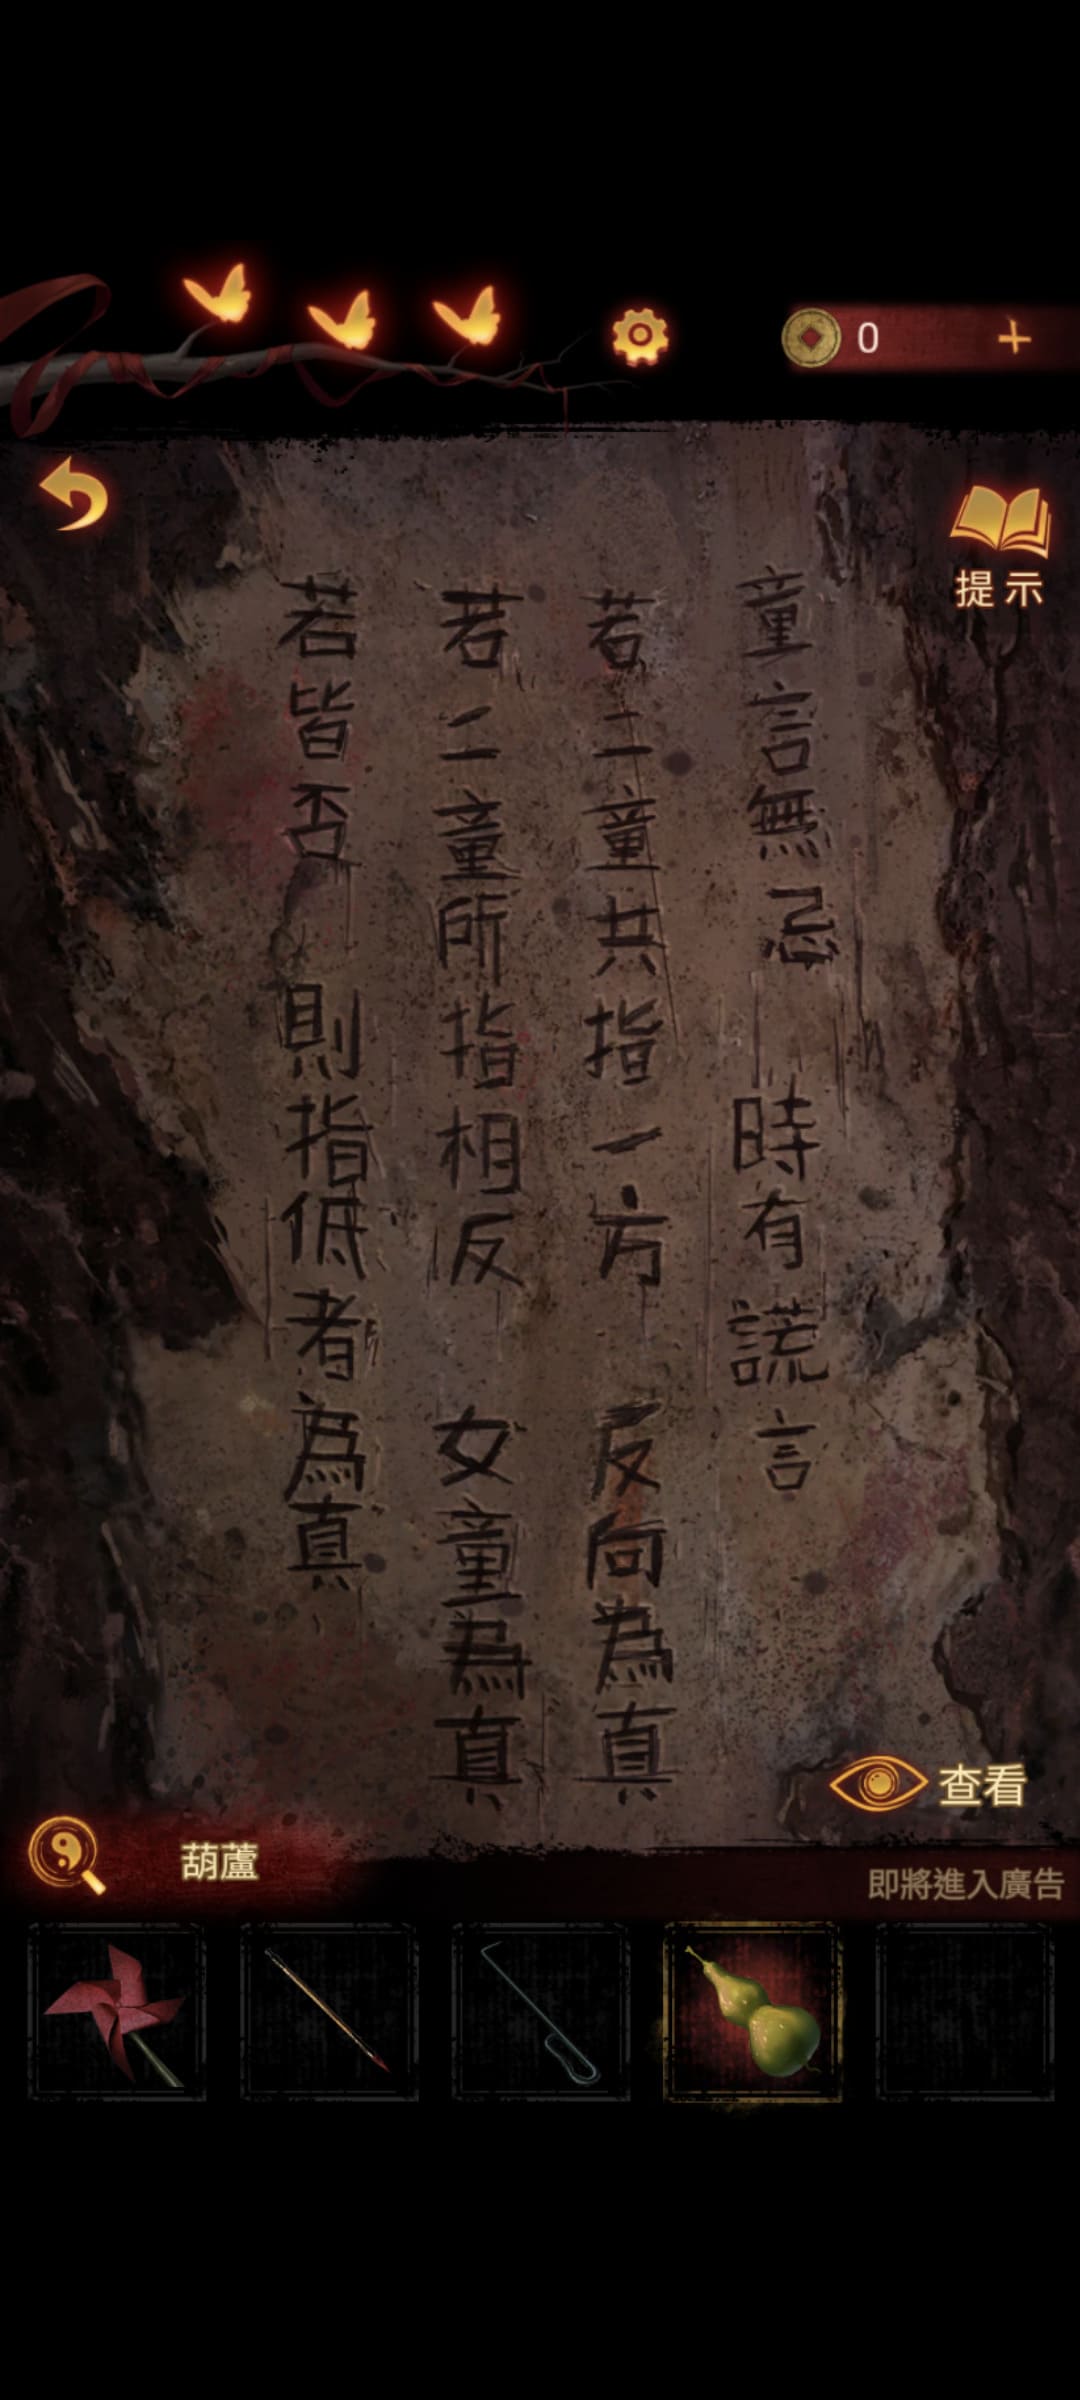 0
提示
童言無忌 時有謊言
若二童共指一方 反向為真
若二童所指相反 女童為真
若皆否 則指低者為真
查看
葫蘆
即將進入廣告